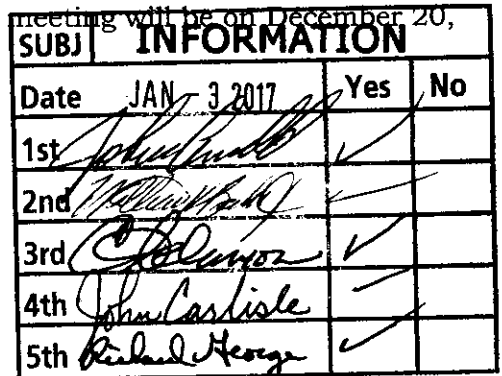 meeting will be on December 20,
SUBJ INFORMATION
Date JAN - 3 2017 Yes No
1st John ✓
2nd ✓
3rd ✓
4th John Carlisle ✓
5th Richard George ✓